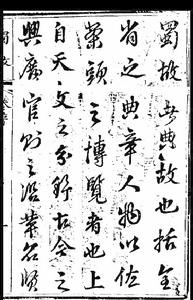 蜀故蜀典故也括全
省之典章人物以佐
蒙頭之博覽者也上
自天文之分野古今之
興廢官制之沿革名賢
蜀故